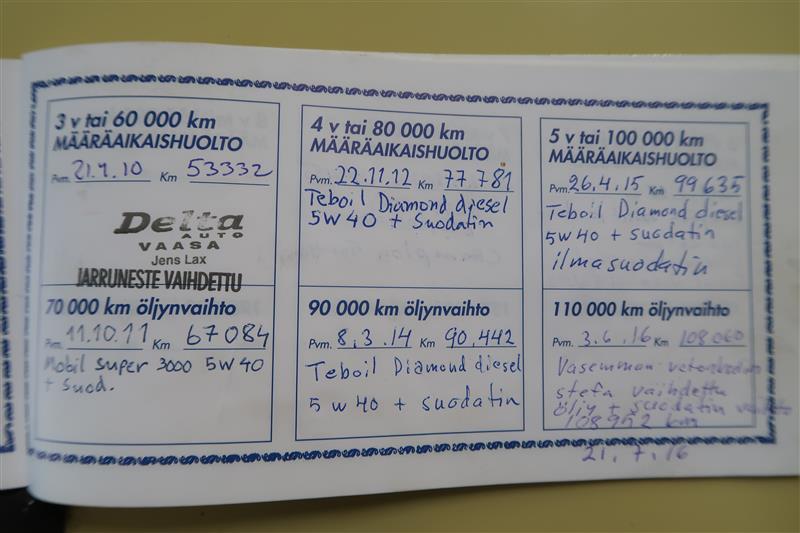 3 v tai 60 000 km
MÄÄRÄAIKAISHUOLTO
Pvm. 21.9.10 Km 53332
Delta
AUTO
VAASA
Jens Lax
JARRUNESTE VAIHDETTU
70 000 km öljynvaihto
Pvm. 11.10.11 Km 67084
Mobil super 3000 5W40
+ Suod.
4 v tai 80 000 km
MÄÄRÄAIKAISHUOLTO
Pvm. 22.11.12 Km 77 781
Teboil Diamond diesel
5W40 + Suodatin
90 000 km öljynvaihto
Pvm. 8.3.14 Km 90.442
Teboil Diamond diesel
5w40 + suodatin
5 v tai 100 000 km
MÄÄRÄAIKAISHUOLTO
Pvm. 26.4.15 Km 99635
Teboil Diamond diesel
5w40 + suodatin
ilmasuodatin
110 000 km öljynvaihto
Pvm. 3.6.16 Km 108060
Vasemman
stefa vaihdettu
öljy + suodatin vaihto
108952 km
21.7.16